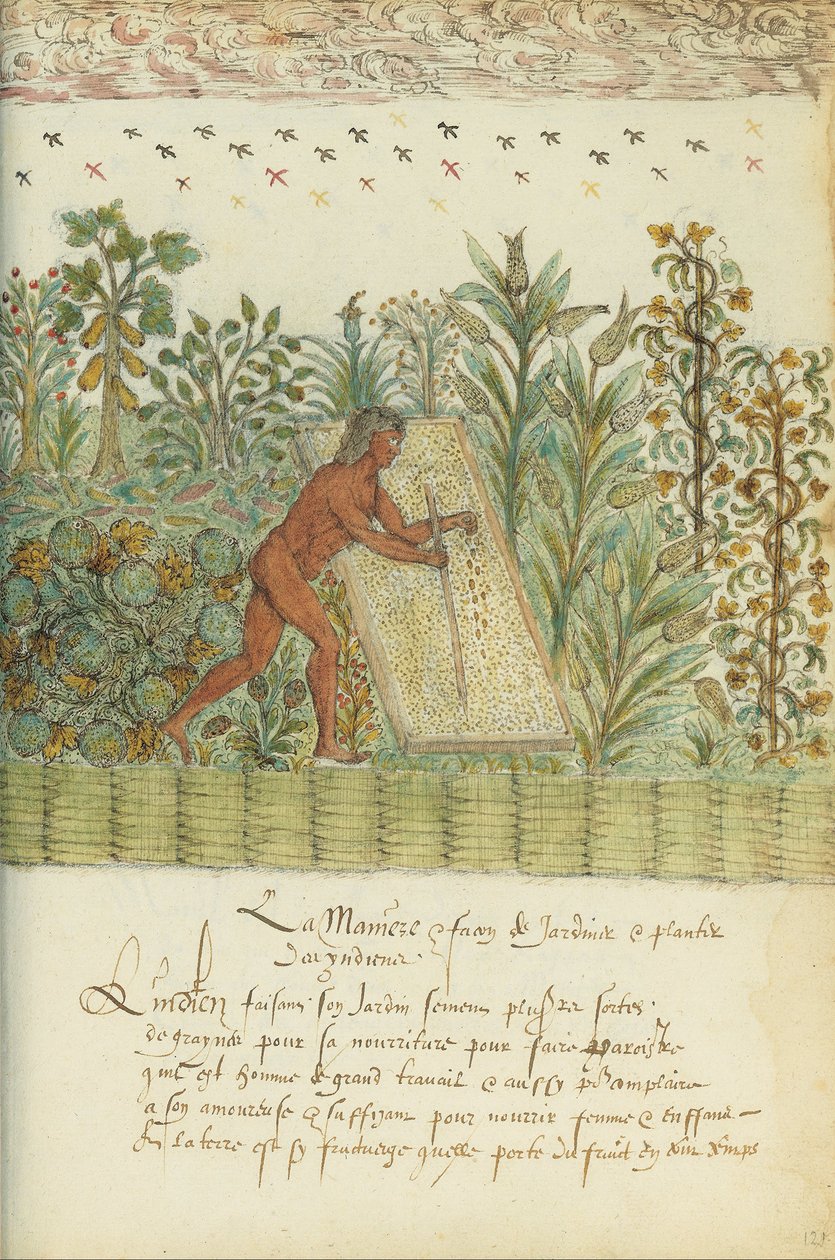 La Maniere & facon de Jardiner & planter
des yndienes.
L'indien faisant son Jardin semens plusieurs sortes
de graynes pour sa nourriture pour faire paroistre
qu'il est homme de grand travail & aussy pour complaire
a son amoureuse & suffisant pour nourrir femme & enffans
la terre est sy fructuerge quelle porte du fruict en temps
121